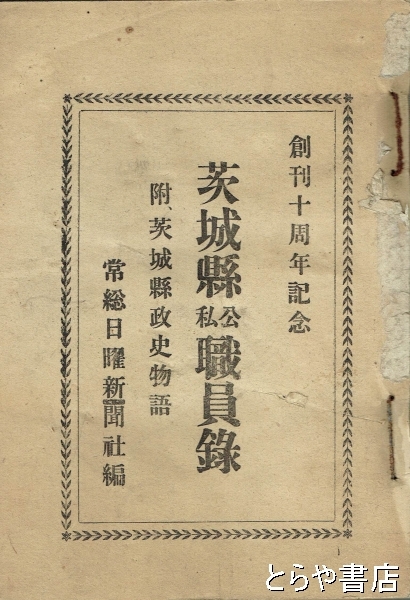 創刊十周年記念
茨城縣公私職員錄
附、茨城縣政史物語
常総日曜新聞社編
とらや書店